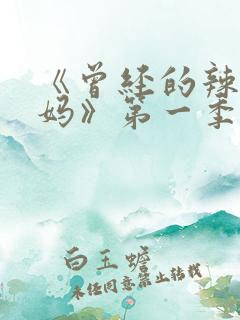 《曾经的辣
妈》第一季
白玉蟾
未经同意禁止转载